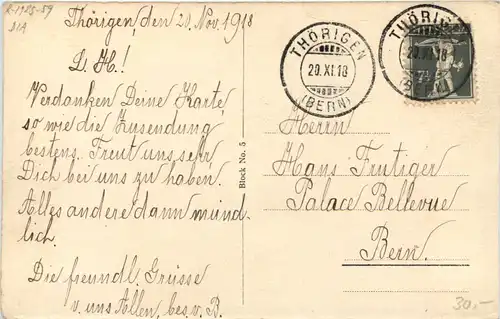 K-1985-59
S1A
Thörigen, den 20. Nov. 1918
L. H.!
Verdanken Deine Karte,
so wie die Zusendung
bestens. Freut uns sehr
Dich bei uns zu haben.
Alles andere dann münd-
lich.
Die freundl. Grüsse
v. uns Allen, bes. v. B.
Block No. 5
THÖRIGEN
20.XI.18
(BERN)
THÖRIGEN
20.XI.18
(BERN)
7½
Herrn
Hans Frutiger
Palace Bellevue
Bern.
30.-